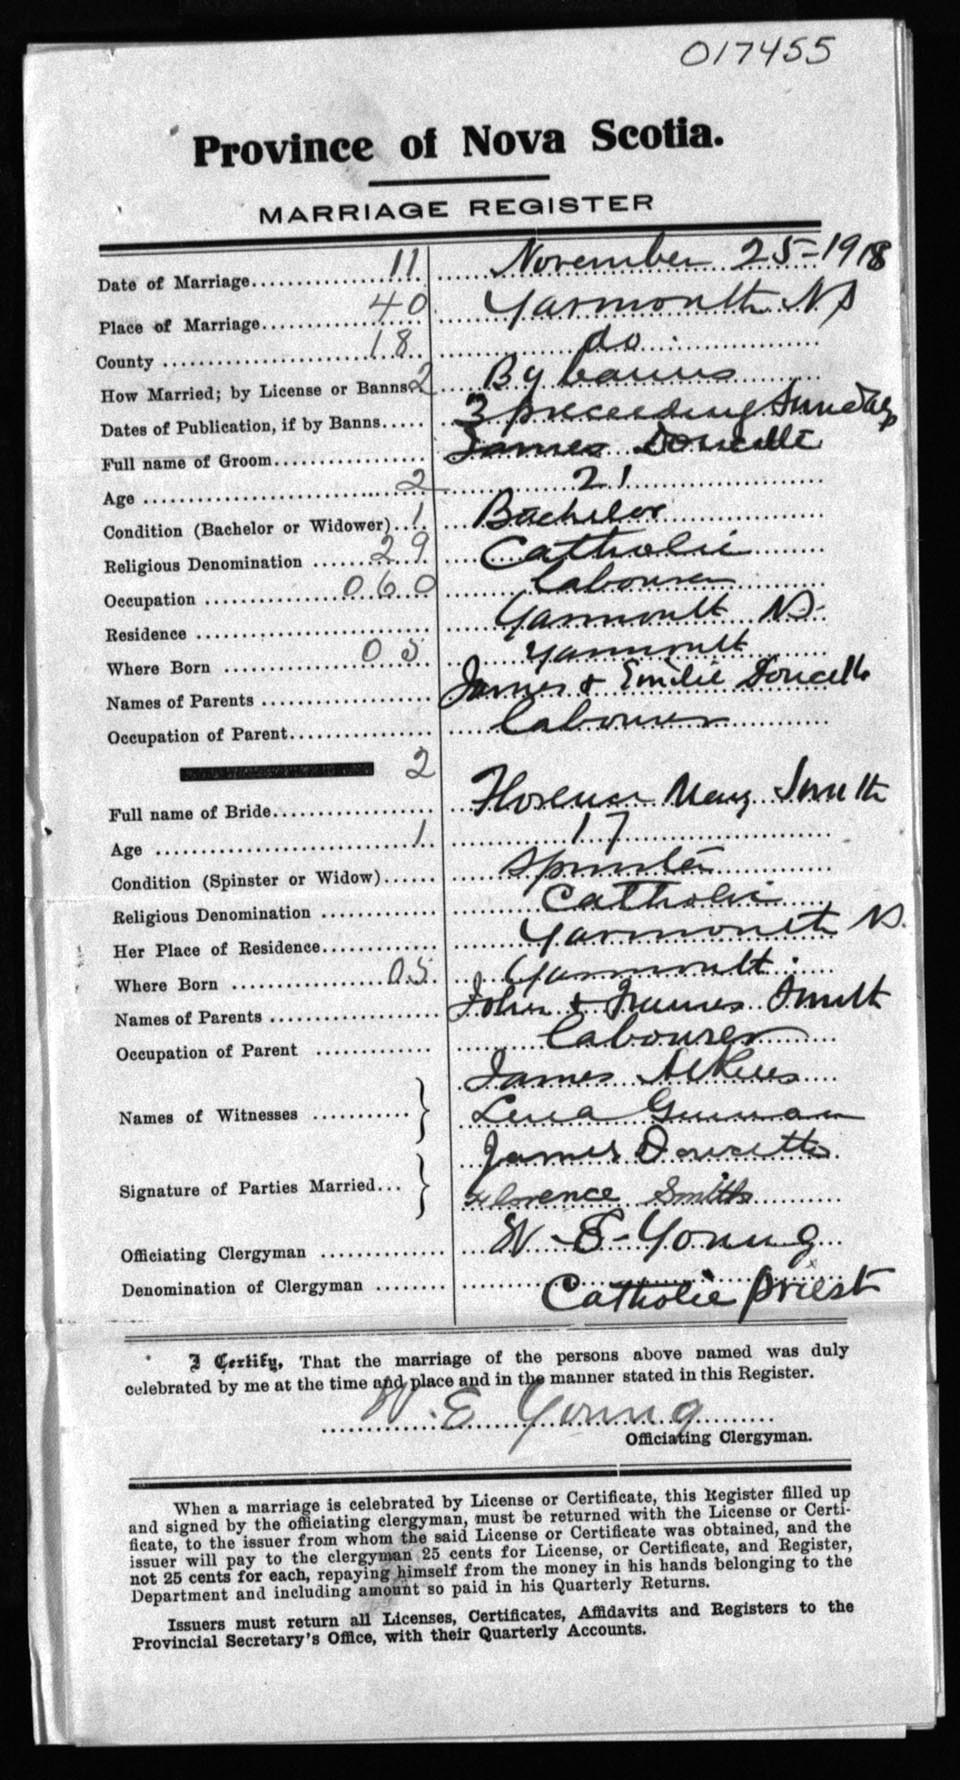 017455
Province of Nova Scotia.
MARRIAGE REGISTER
Date of Marriage 11 November 25-1918
Place of Marriage 40 Yarmouth NS
County 18 do
How Married; by License or Banns 2 By banns
Dates of Publication, if by Banns 3 preceeding Sundays
Full name of Groom James Doucette
Age 2 21
Condition (Bachelor or Widower) 1 Bachelor
Religious Denomination 29 Catholic
Occupation 060 labourer
Residence Yarmouth NS
Where Born 05 Yarmouth
Names of Parents James & Emilie Doucette
Occupation of Parent labourer
2
Full name of Bride Florence May Smith
Age 1 17
Condition (Spinster or Widow) Spinster
Religious Denomination Catholic
Her Place of Residence Yarmouth NS.
Where Born 05 Yarmouth
Names of Parents John & Smith
Occupation of Parent labourer
James
Names of Witnesses } Lena
James Doucette
Signature of Parties Married } Florence Smith
Officiating Clergyman W-E-Young
Denomination of Clergyman Catholic priest
I Certify, That the marriage of the persons above named was duly
celebrated by me at the time and place and in the manner stated in this Register.
W.E Young
Officiating Clergyman.
When a marriage is celebrated by License or Certificate, this Register filled up
and signed by the officiating clergyman, must be returned with the License or Certi-
ficate, to the issuer from whom the said License or Certificate was obtained, and the
issuer will pay to the clergyman 25 cents for License, or Certificate, and Register,
not 25 cents for each, repaying himself from the money in his hands belonging to the
Department and including amount so paid in his Quarterly Returns.
Issuers must return all Licenses, Certificates, Affidavits and Registers to the
Provincial Secretary's Office, with their Quarterly Accounts.